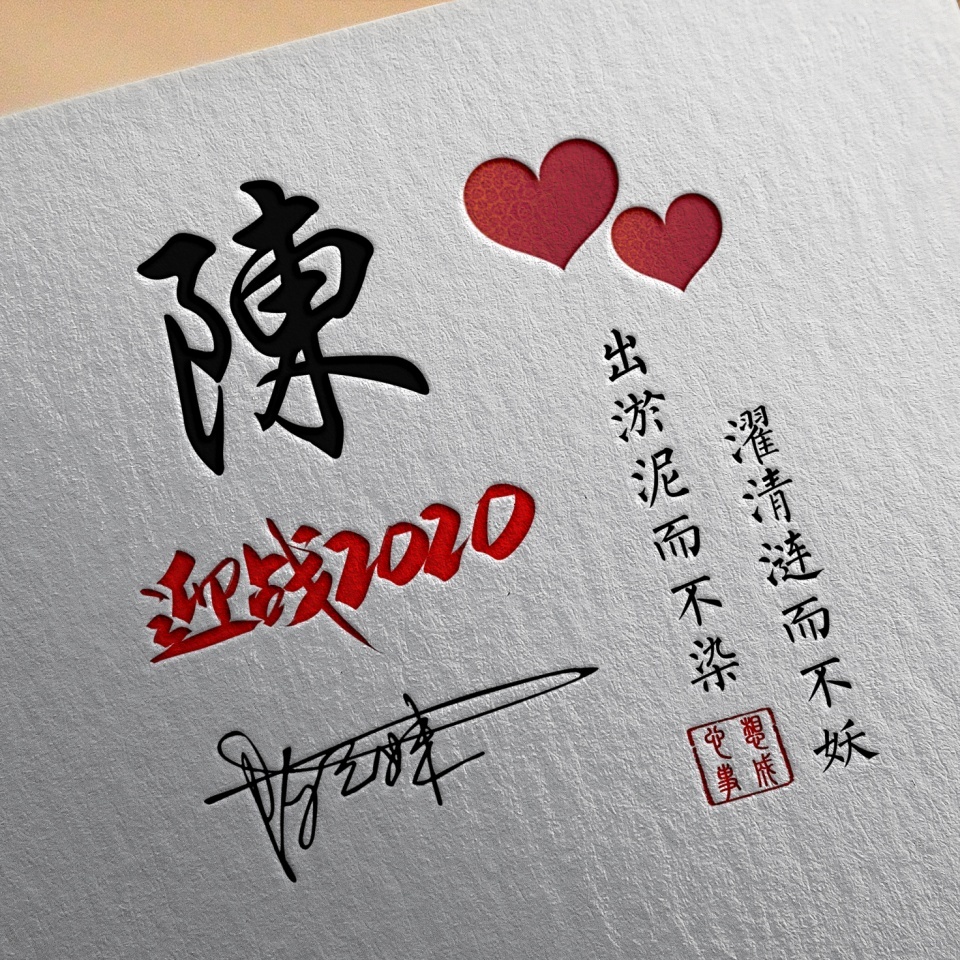 陳
迎战2020
出淤泥而不染
濯清涟而不妖
心想事成